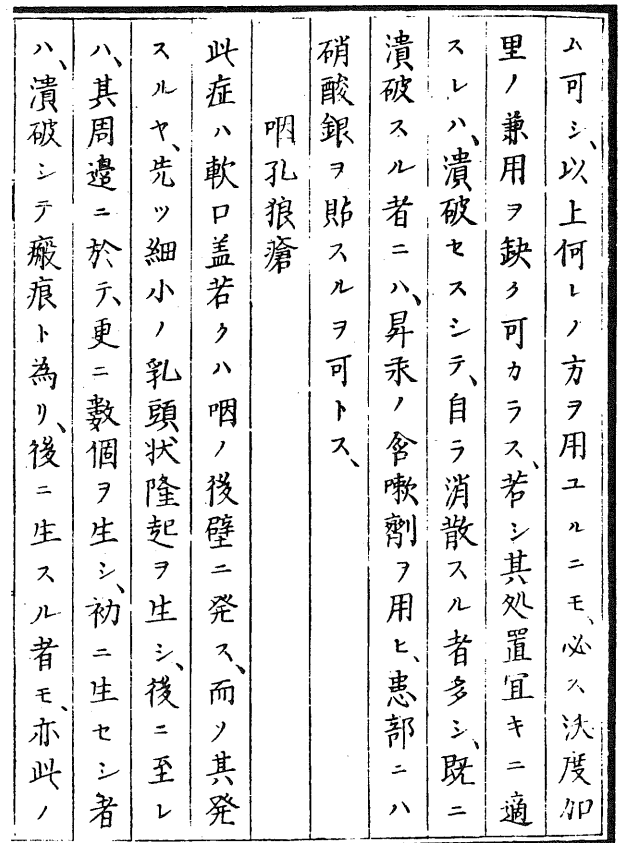 ム可シ、以上何レノ方ヲ用ユルニモ、必ス沃度加
里ノ兼用ヲ缺ク可カラス、若シ其処置冝キニ適
スレハ、潰破セスシテ、自ラ消散スル者多シ、既ニ
潰破スル者ニハ、昇汞ノ含嗽劑ヲ用ヒ、患部ニハ
硝酸銀ヲ貼スルヲ可トス、
咽孔狼瘡
此症ハ軟口盖若クハ咽ノ後壁ニ発ス、而ソ其発
スルヤ、先ツ細小ノ乳頭状隆起ヲ生シ、後ニ至レ
ハ、其周邉ニ於テ、更ニ數個ヲ生シ、初ニ生セシ者
ハ、潰破シテ瘢痕ト為リ、後ニ生スル者モ、亦此ノ